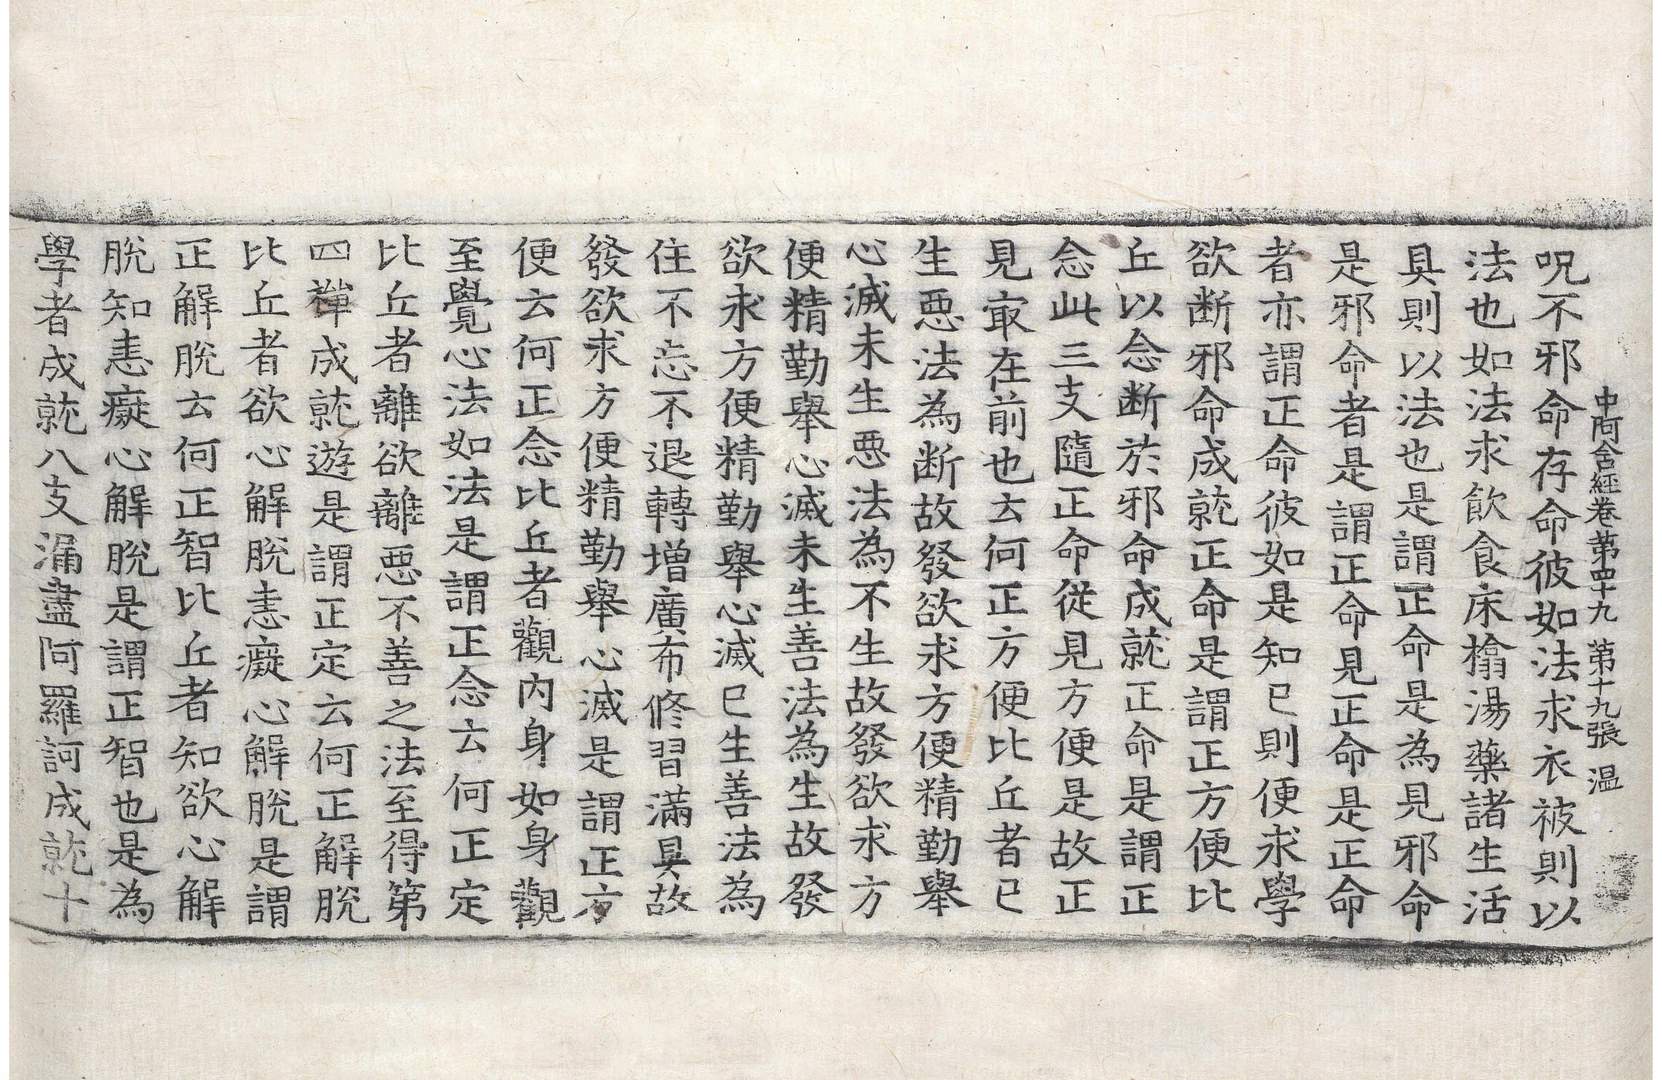 中阿含經卷第四十九 第十九張 温
呪不邪命存命彼如法求衣被則以
法也如法求飲食床榻湯藥諸生活
具則以法也是謂正命是為見邪命
是邪命者是謂正命見正命是正命
者亦謂正命彼如是知已則便求學
欲断邪命成就正命是謂正方便比
丘以念断於邪命成就正命是謂正
念此三支隨正命從見方便是故正
見㝡在前也云何正方便比丘者已
生惡法為断故發欲求方便精勤舉
心滅未生惡法為不生故發欲求方
便精勤舉心滅未生善法為生故發
欲求方便精勤舉心滅已生善法為
住不忘不退轉增廣布修習滿具故
發欲求方便精勤舉心滅是謂正方
便云何正念比丘者觀內身如身觀
至覺心法如法是謂正念云何正定
比丘者離欲離惡不善之法至得第
四禪成就遊是謂正定云何正解脫
比丘者欲心解脫恚癡心解脫是謂
正解脫云何正智比丘者知欲心解
脫知恚癡心解脫是謂正智也是為
學者成就八支漏盡阿羅訶成就十